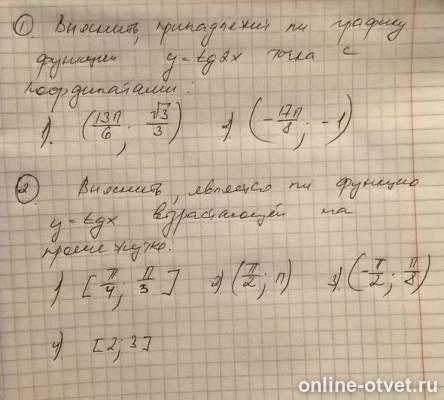 ① Выяснить, принадлежит ли графику
функции y=tg2x точка с
координатами:
1). (13π/6; √3/3) 2) (-17π/8; -1)
② Выяснить, является ли функция
y=tgx возрастающей на
промежутке.
1) [π/4; π/3] 2) (π/2; π) 3) (-π/2; π/8)
4) [2; 3]
online-otvet.ru